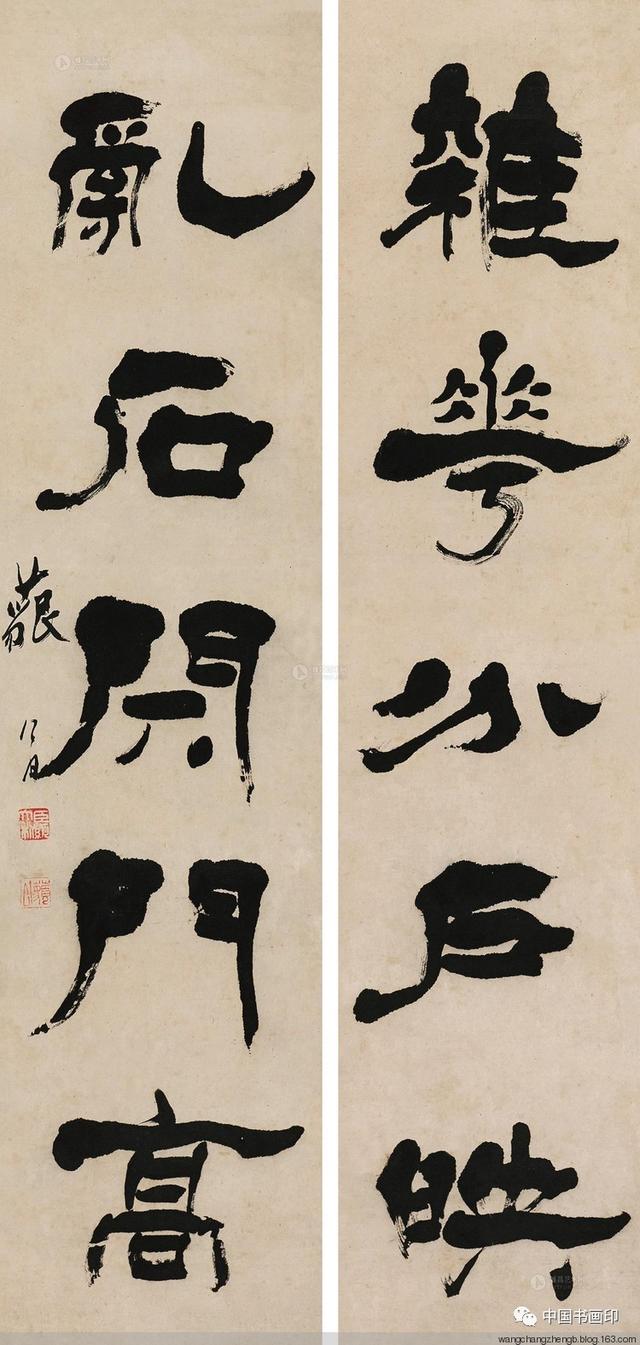 雜華分戶映
亂石開門高
中国书画印
wangchangzhengb.blog.163.com